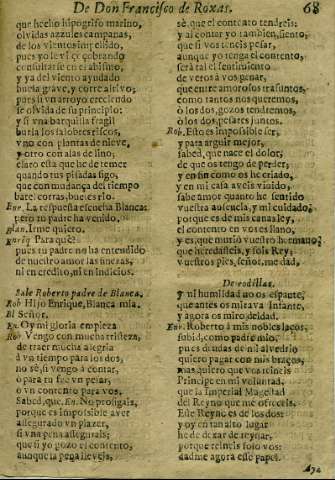 De Don Francisco de Roxas. 68
que hecho hipogrifo marino,
olvidas azzules campanas,
de los vientos impelido,
pues yo le vi çoçobrando
consultarse en el abismo,
y ya del viento ayudado
buela grave, y corre altivo;
pues si vn arroyo creciendo
se olvida de su principio:
y si vna barquilla fragil
burla los salobres riscos,
vno con plantas de nieve,
y otro con alas de lino,
claro està que he de temer
quando tus pisadas sigo,
que con mudança del tiempo
barca corras, buelos rio.
Enr. La respuesta escucha Blanca:
pero tu padre ha venido.
Blan. Irme quiero.
Enriq Para què?
pues tu padre no ha entendido
de nuestro amor las finezas,
ni en credito, ni en indicios.
Sale Roberto padre de Blanca.
Rob Hijo Enrique, Blanca mia.
El Señor.
En. Oy mi gloria empieza
Ro Vengo con mucha tristeza,
de traer mucha alegria
à vn tiempo para los dos,
no sè, si vengo à contar,
o para tu fue vn pesar,
o vn contento para vos.
Sabed, que. En. No prosigais,
porque es impossible aver
assegurado vn plazer,
si vna pena assegurais;
que si yo gozo el contento,
aunque la pena lleveis,
sè, que el contento tendreis:
y al contar yo tambien, siento,
que si vos teneis pesar,
aunque yo tenga el contento,
serà tal el sentimiento
de veros à vos penar,
que entre amorosos trasuntos,
como tantos nos queremos,
ò los dos, gozos tendremos,
ò los dos, pesares juntos.
Rob. Esto es impossible ser,
y para arguir mejor,
sabed, que nace el dolor;
de que os tengo de perder,
y en fin como os he criado,
y en mi casa aveis vivido,
sabe amor quanto he sentido
vuestra ausencia, y mi cuidado:
porque es de mis canas ley,
el contento en vos es llano,
y es, que muriò vuestro hermano,
que heredasteis, y sois Rey;
vuestros pies, señor, me dad,
De rodillas.
y mi humildad no os espante,
que antes os mirava Infante,
y agora os miro deidad.
Enr. Roberto à mis nobles laços,
subid, como padre mio,
pues deudas de mi alvedrio
quiero pagar con mis braços,
mas quiero que vos reineis
Principe en mi voluntad,
que la Imperial Magestad
del Reyno que me ofreceis.
Este Reyno es de los dos:
y oy en tan alto lugar
he de dexar de reynar,
porque reineis solo vos:
dadme agora esse papel.